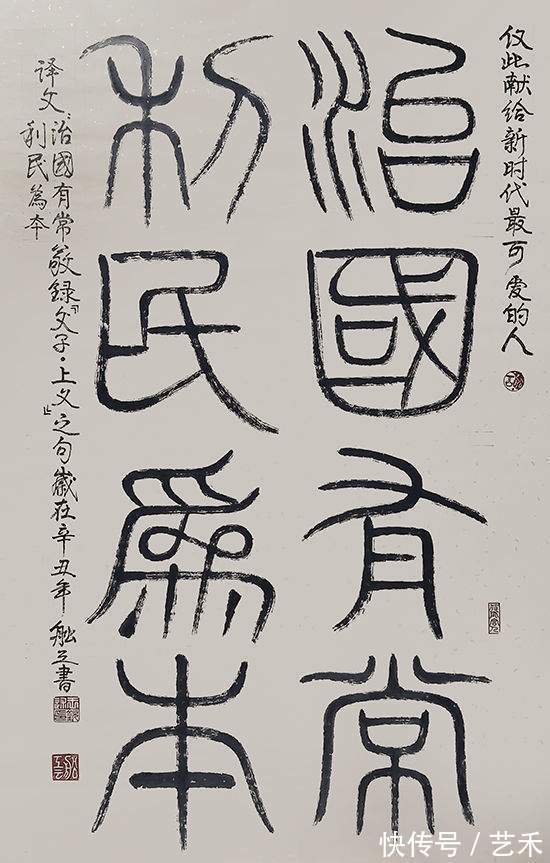 仅此献给新时代最可爱的人
治國有常
利民爲本
译文：治國有常
利民為本
敬録『文子·上义』之句歲在辛丑年之書
快传号 / 艺禾